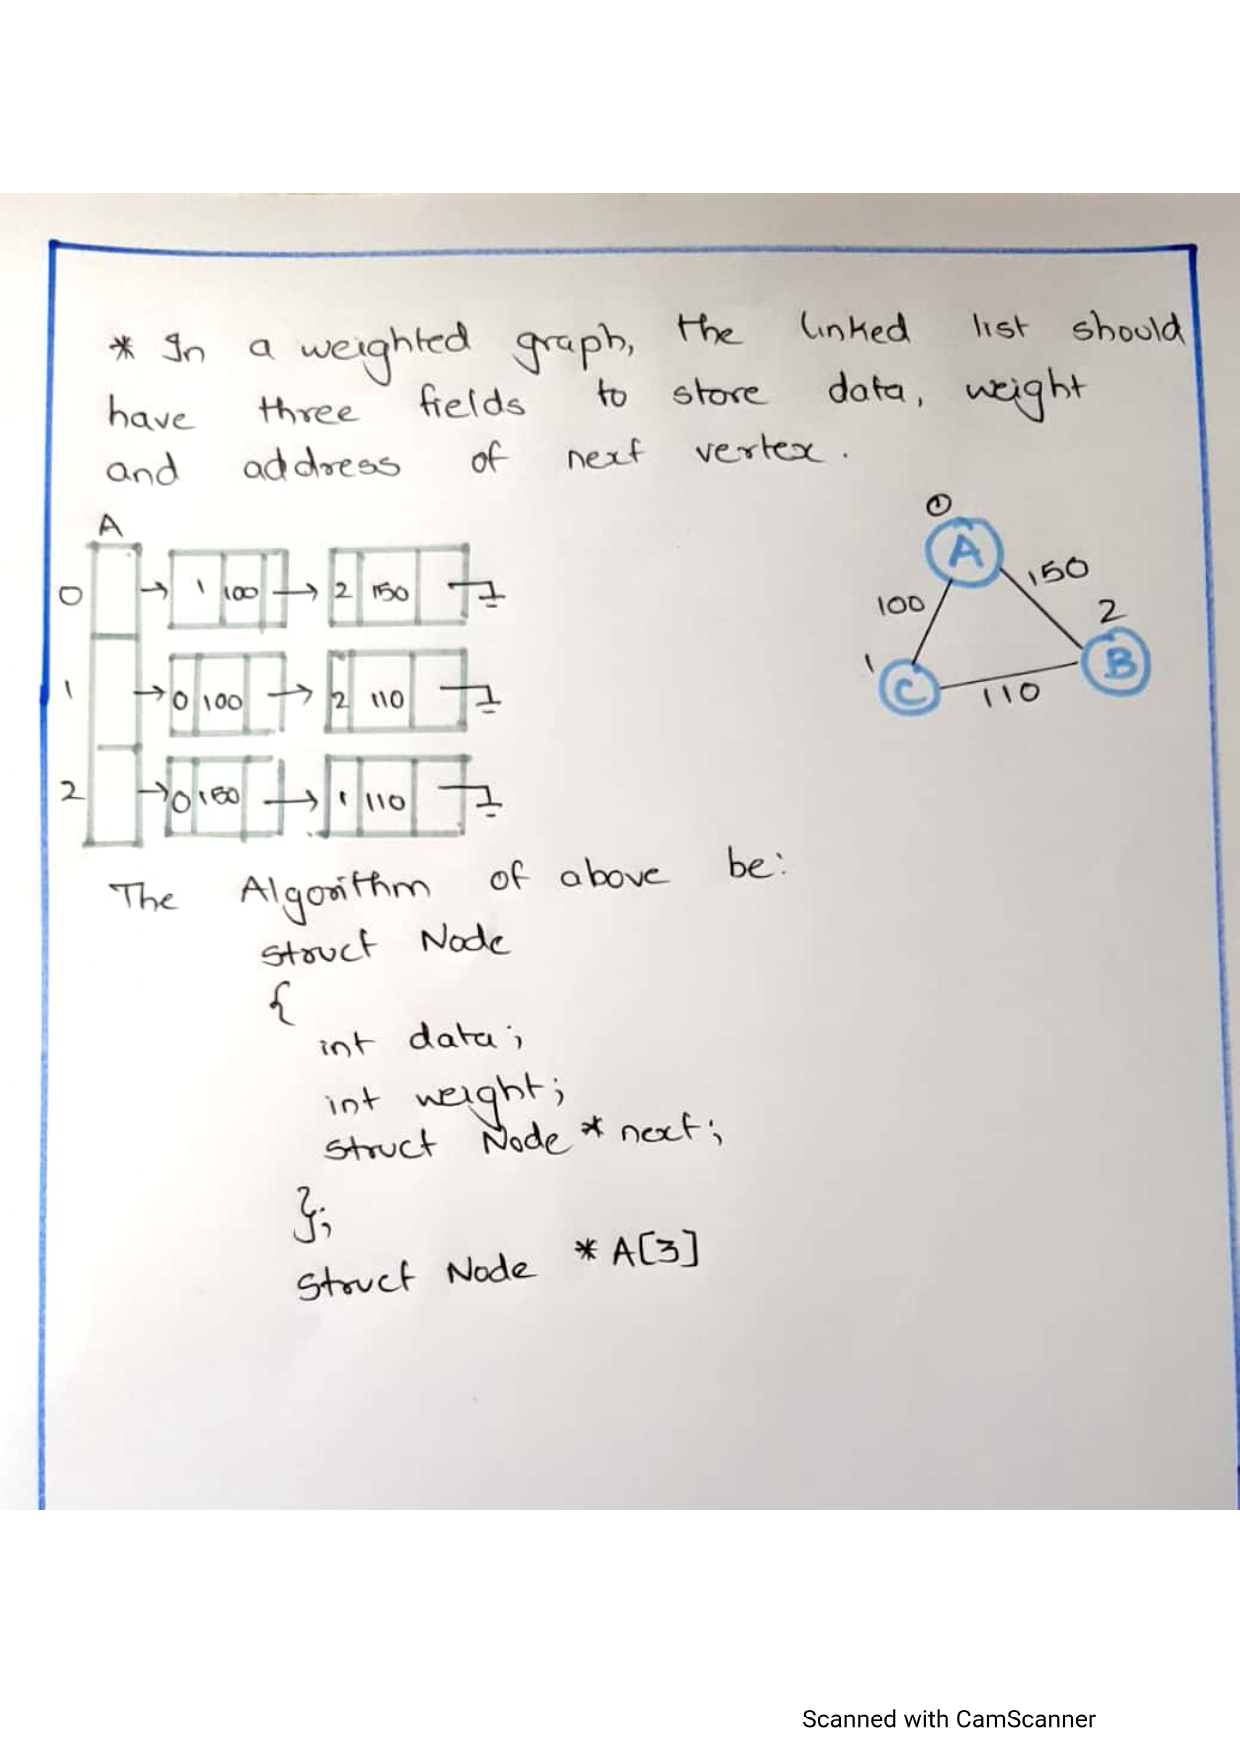 * In a weighted graph, the linked list should
have three fields to store data, weight
and address of next vertex.
A
0 1 100 2 150
1 0 100 2 110
2 0 150 1 110
0
A
150
100
2
1
C
B
110
The Algorithm of above be:
struct Node
{
int data;
int weight;
struct Node * next;
};
struct Node * A[3]
Scanned with CamScanner